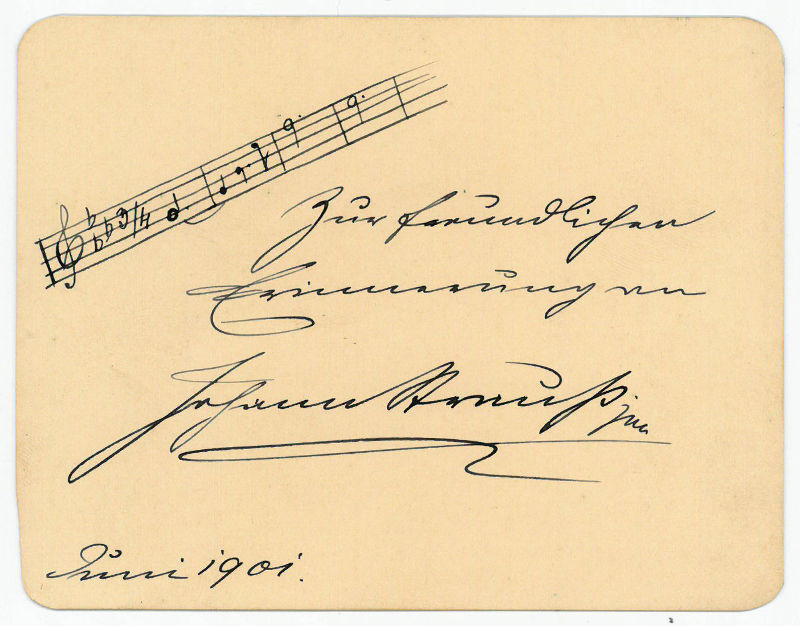 3/4
Zur freundlichen
Erinnerung an
Johann Strauß jun
Juni 1901.